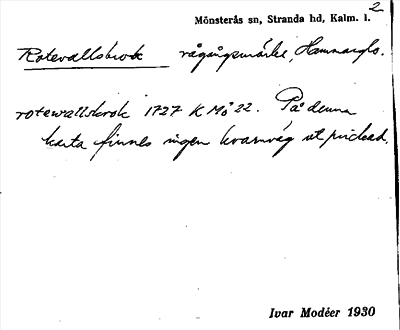 2
Mönsterås sn, Stranda hd, Kalm. l.
Rotevallsbrok rågångsmärke, Hammarglo.
rotewallsbrok 1727 K Mö 22. På denna
karta finnes ingen kvarnväg utprickad.
Ivar Modéer 1930